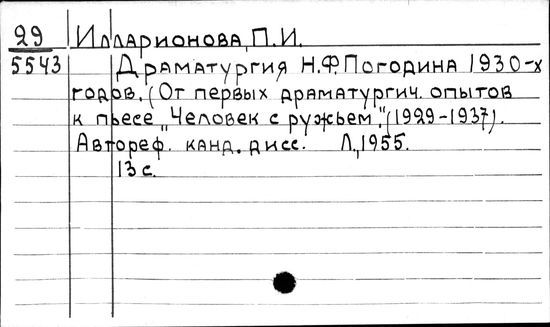 29 Илларионова, П.И.
5543 Драматургия Н.Ф.Погодина 1930-х
годов. (От первых драматургич. опытов
к пьесе „Человек с ружьем". (1929-1937).
Автореф. канд. дисс. Л., 1955.
13 с.